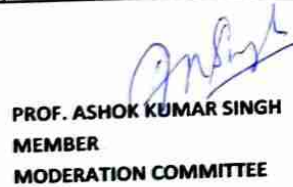 PROF. ASHOK KUMAR SINGH
MEMBER
MODERATION COMMITTEE